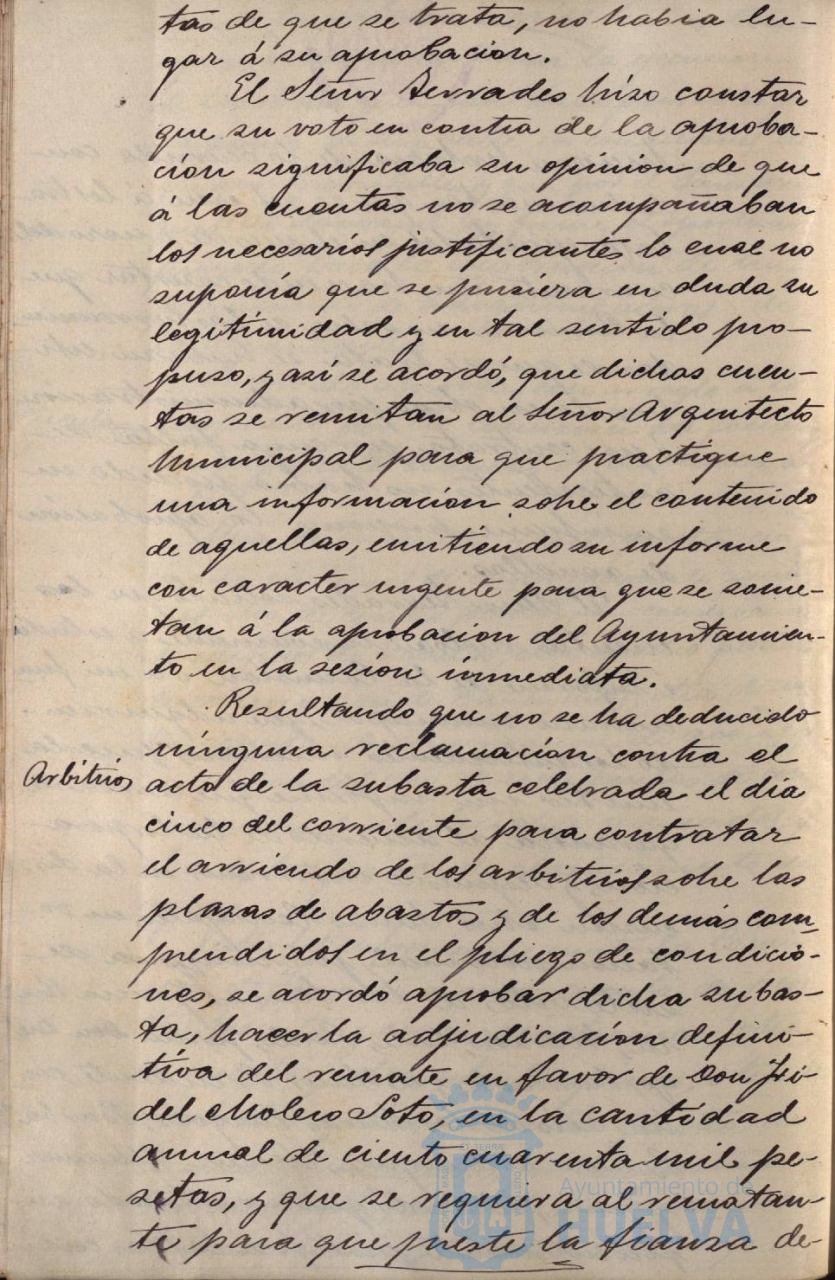 tas de que se trata, no habia lu-
gar á su aprobacion.
El Señor Terrades hizo constar
que su voto en contra de la aproba-
ción significaba su opinion de que
á las cuentas no se acompañaban
los necesarios justificantes lo cual no
suponía que se pusiera en duda su
legitimidad y en tal sentido pro-
puso, y así se acordó, que dichas cuen-
tas se remitan al Señor Arquitecto
Municipal para que practique
una información sobre el contenido
de aquellas, emitiendo su informe
con caracter urgente para que se some-
tan á la aprobacion del Ayuntamien-
to en la sesión inmediata.
Resultando que no se ha deducido
ninguna reclamación contra el
Arbitrios
acto de la subasta celebrada el dia
cinco del corriente para contratar
el arriendo de los arbitrios sobre las
plazas de abastos y de los demás com-
prendidos en el pliego de condicio-
nes, se acordó aprobar dicha subas-
ta, hacer la adjudicación defini-
tiva del remate en favor de Don Fi-
del Molero Soto, en la cantidad
anual de ciento cuarenta mil pe-
setas, y que se requiera al rematan-
te para que preste la fianza de-
Ayuntamiento de
HUELVA